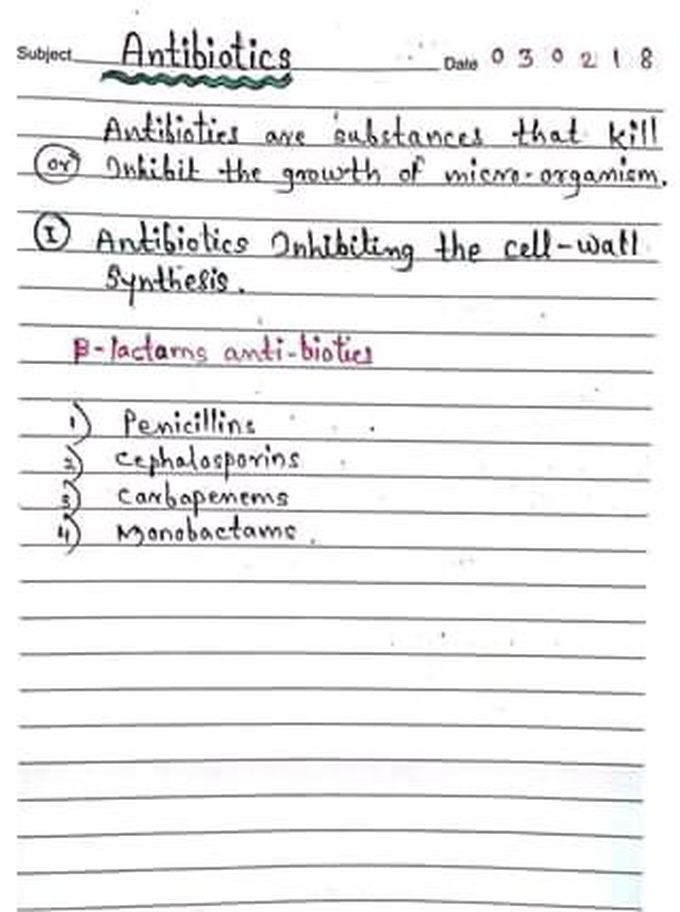 Subject Antibiotics Date 030218
Antibiotics are substances that kill
or Inhibit the growth of micro-organism.
I Antibiotics Inhibiting the cell-wall
Synthesis.
β-lactams anti-biotics
1) Penicillins
2) Cephalosporins
3) Carbapenems
4) Monobactams.